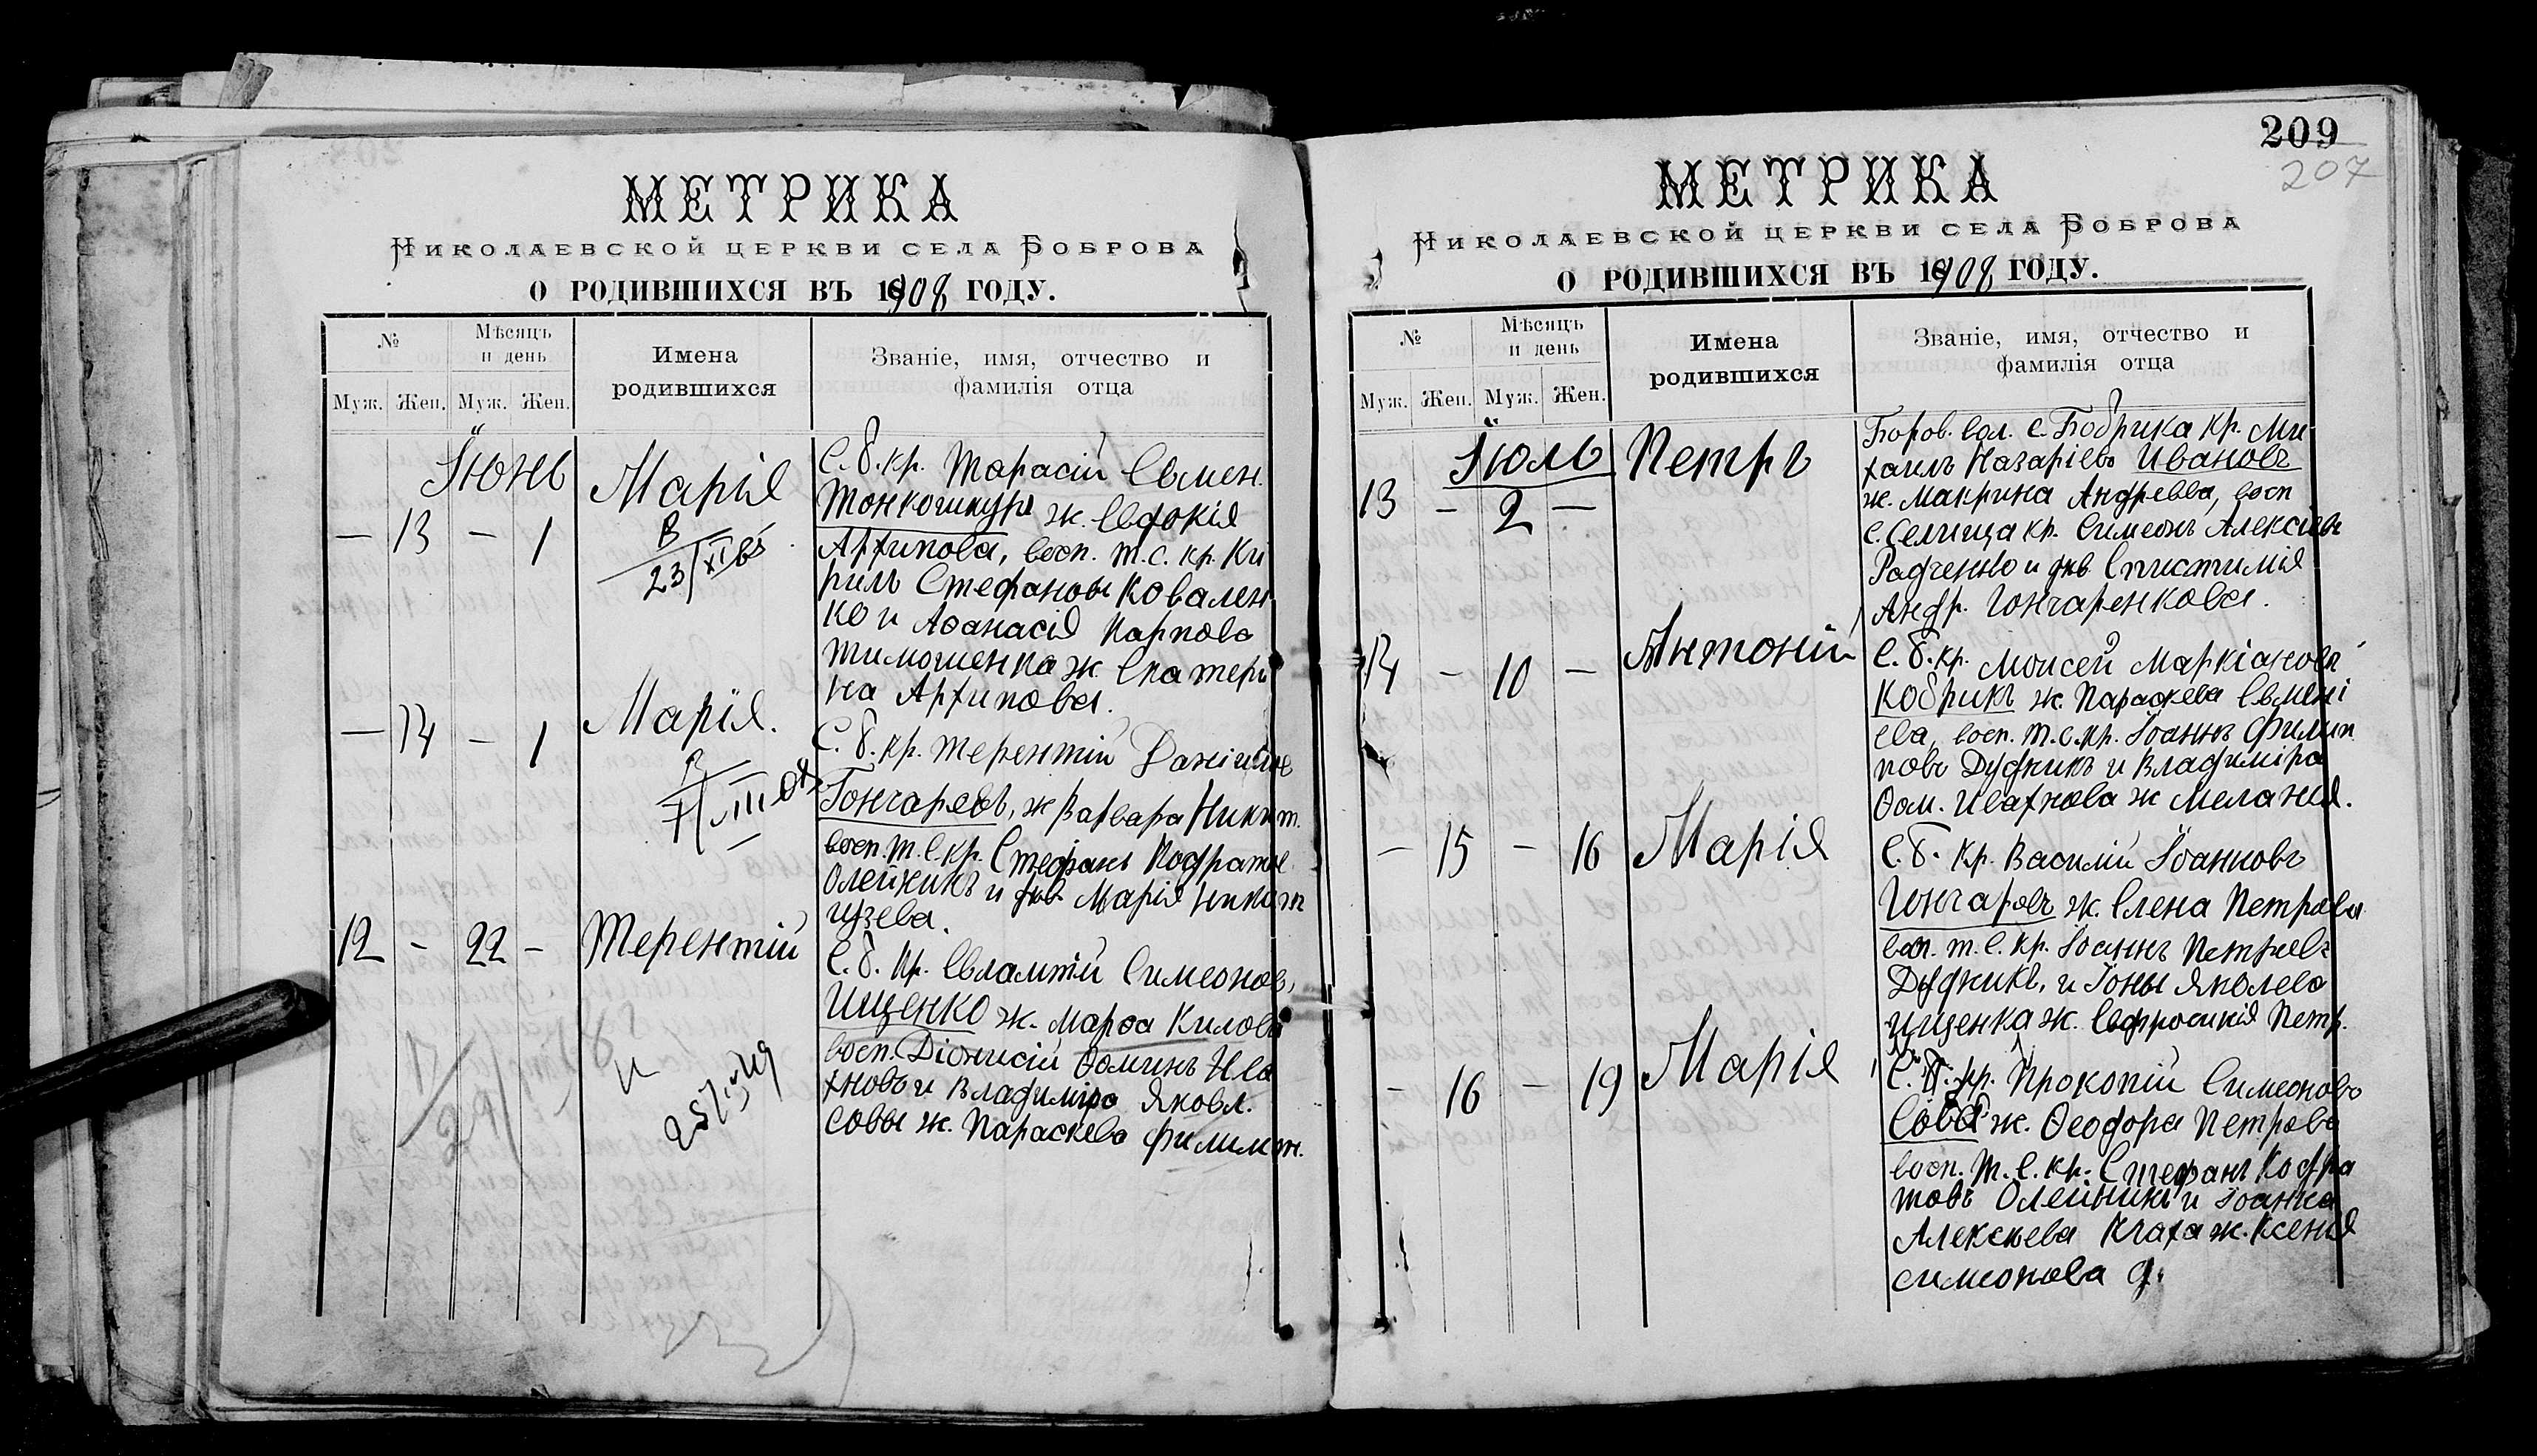 МЕТРИКА
Николаевской церкви села Боброва
О РОДИВШИХСЯ ВЪ 1908 ГОДУ.
№
Мѣсяцъ и день
Имена родившихся
Званіе, имя, отчество и фамилія отца
Муж. Жен. Муж. Жен.
Іюнь
— 13 — 1 Марія
В
23/XI
С. б. кр. Тарасій Евмен.
Тонкошкуръ ж. Евдокія
Архипова, восп. т. с. кр. Ки
рилъ Стефановъ Ковален
ко и Аѳанасія Карпова
Тимошенка ж. Екатери
на Архипова.
— 14 — 1 Марія.
С. б. кр. Терентій Даніилов
Гончаровъ, ж Варвара Никит.
восп. т. с. кр. Стефанъ Кодратов
Олейникъ и дѣв. Марія Никит
Ицзева.
12 — 22 — Терентій
С. б. кр. Евлампій Симеонов,
Ищенко ж. Марѳа Килова
восп. Діонисій Ѳоминъ Ива
хновъ и Владиміра Яковл.
Совы ж. Параскева Филимон.
209
207
МЕТРИКА
Николаевской церкви села Боброва
О РОДИВШИХСЯ ВЪ 1908 ГОДУ.
№
Мѣсяцъ и день
Имена родившихся
Званіе, имя, отчество и фамилія отца
Муж. Жен. Муж. Жен.
Іюль
13 — 2 — Петръ
Боров. вол. с. Бобрика кр. Ми
хаилъ Назаріевъ Ивановъ
ж. Макрина Андреева, восп
с. Селища кр. Симеонъ Алексіевъ
Радченко и дѣв. Епистимія
Андр. Гончаренкова.
14 — 10 — Антоній
С. б. кр. Моисей Маркіановъ
Кобрикъ ж. Параскева Евмені
ева, восп. т. с. кр. Іоаннъ Филип
повъ Дудникъ и Владиміра
Ѳом. Ивахнова ж Меланія.
— 15 — 16 Марія
С. б. кр. Василій Іоанновъ
Гончаровъ ж. Елена Петрова
восп. т. с. кр. Іоаннъ Петровъ
Дудникъ, и Іоны Яковлева
Ищенка ж. Евфросинія Петр.
— 16 — 19 Марія
С. б. кр. Прокопій Симеоновъ
Сова ж. Ѳеодора Петрова
восп. т. с. кр. Стефанъ Кодра
товъ Олейникъ и Іоанна
Алексѣева Клаха ж. Ксенія
Симеонова д.